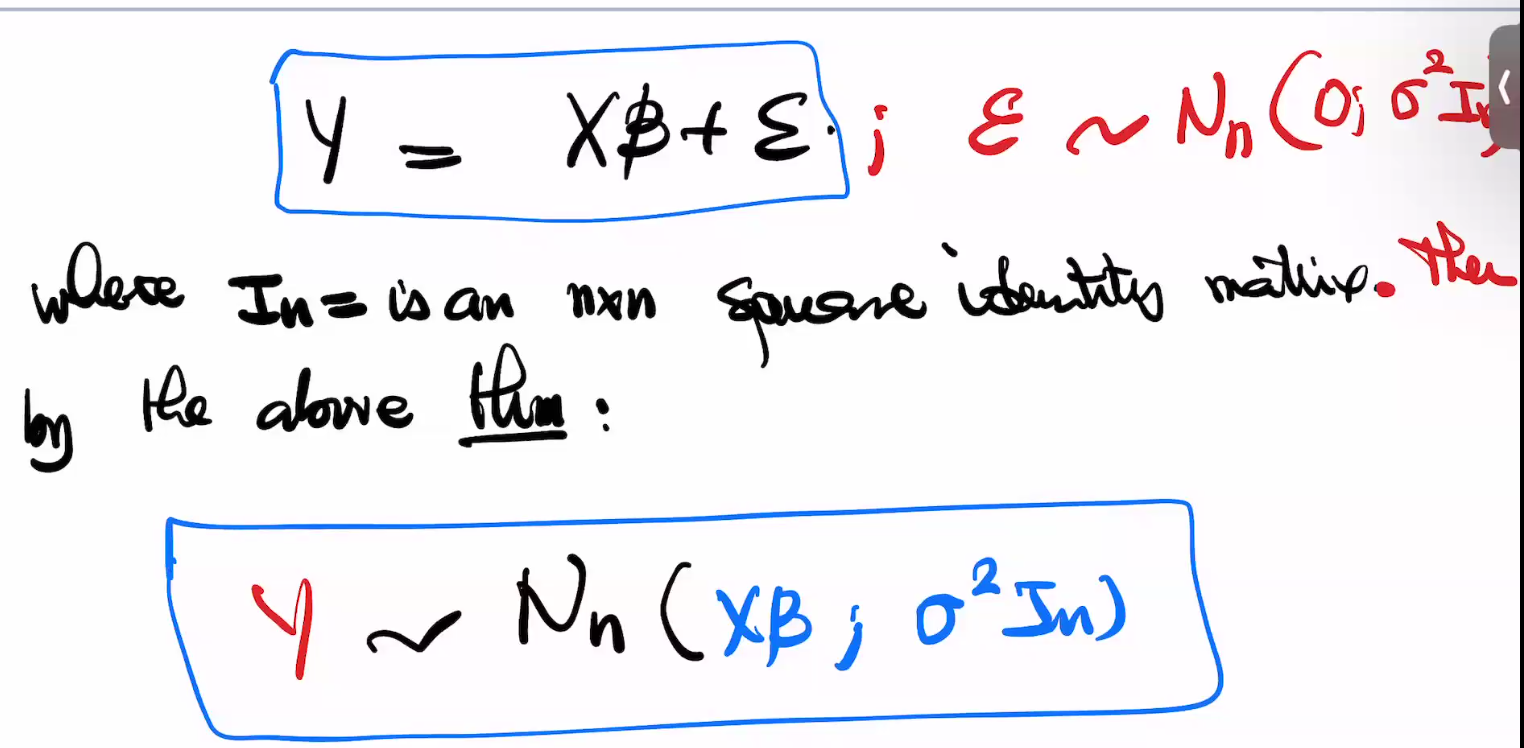 Y = Xβ + ε. ; ε ~ Nn (0; σ² In)
where In = is an n×n square identity matrix. Then
by the above thm :
Y ~ Nn (Xβ ; σ² In)